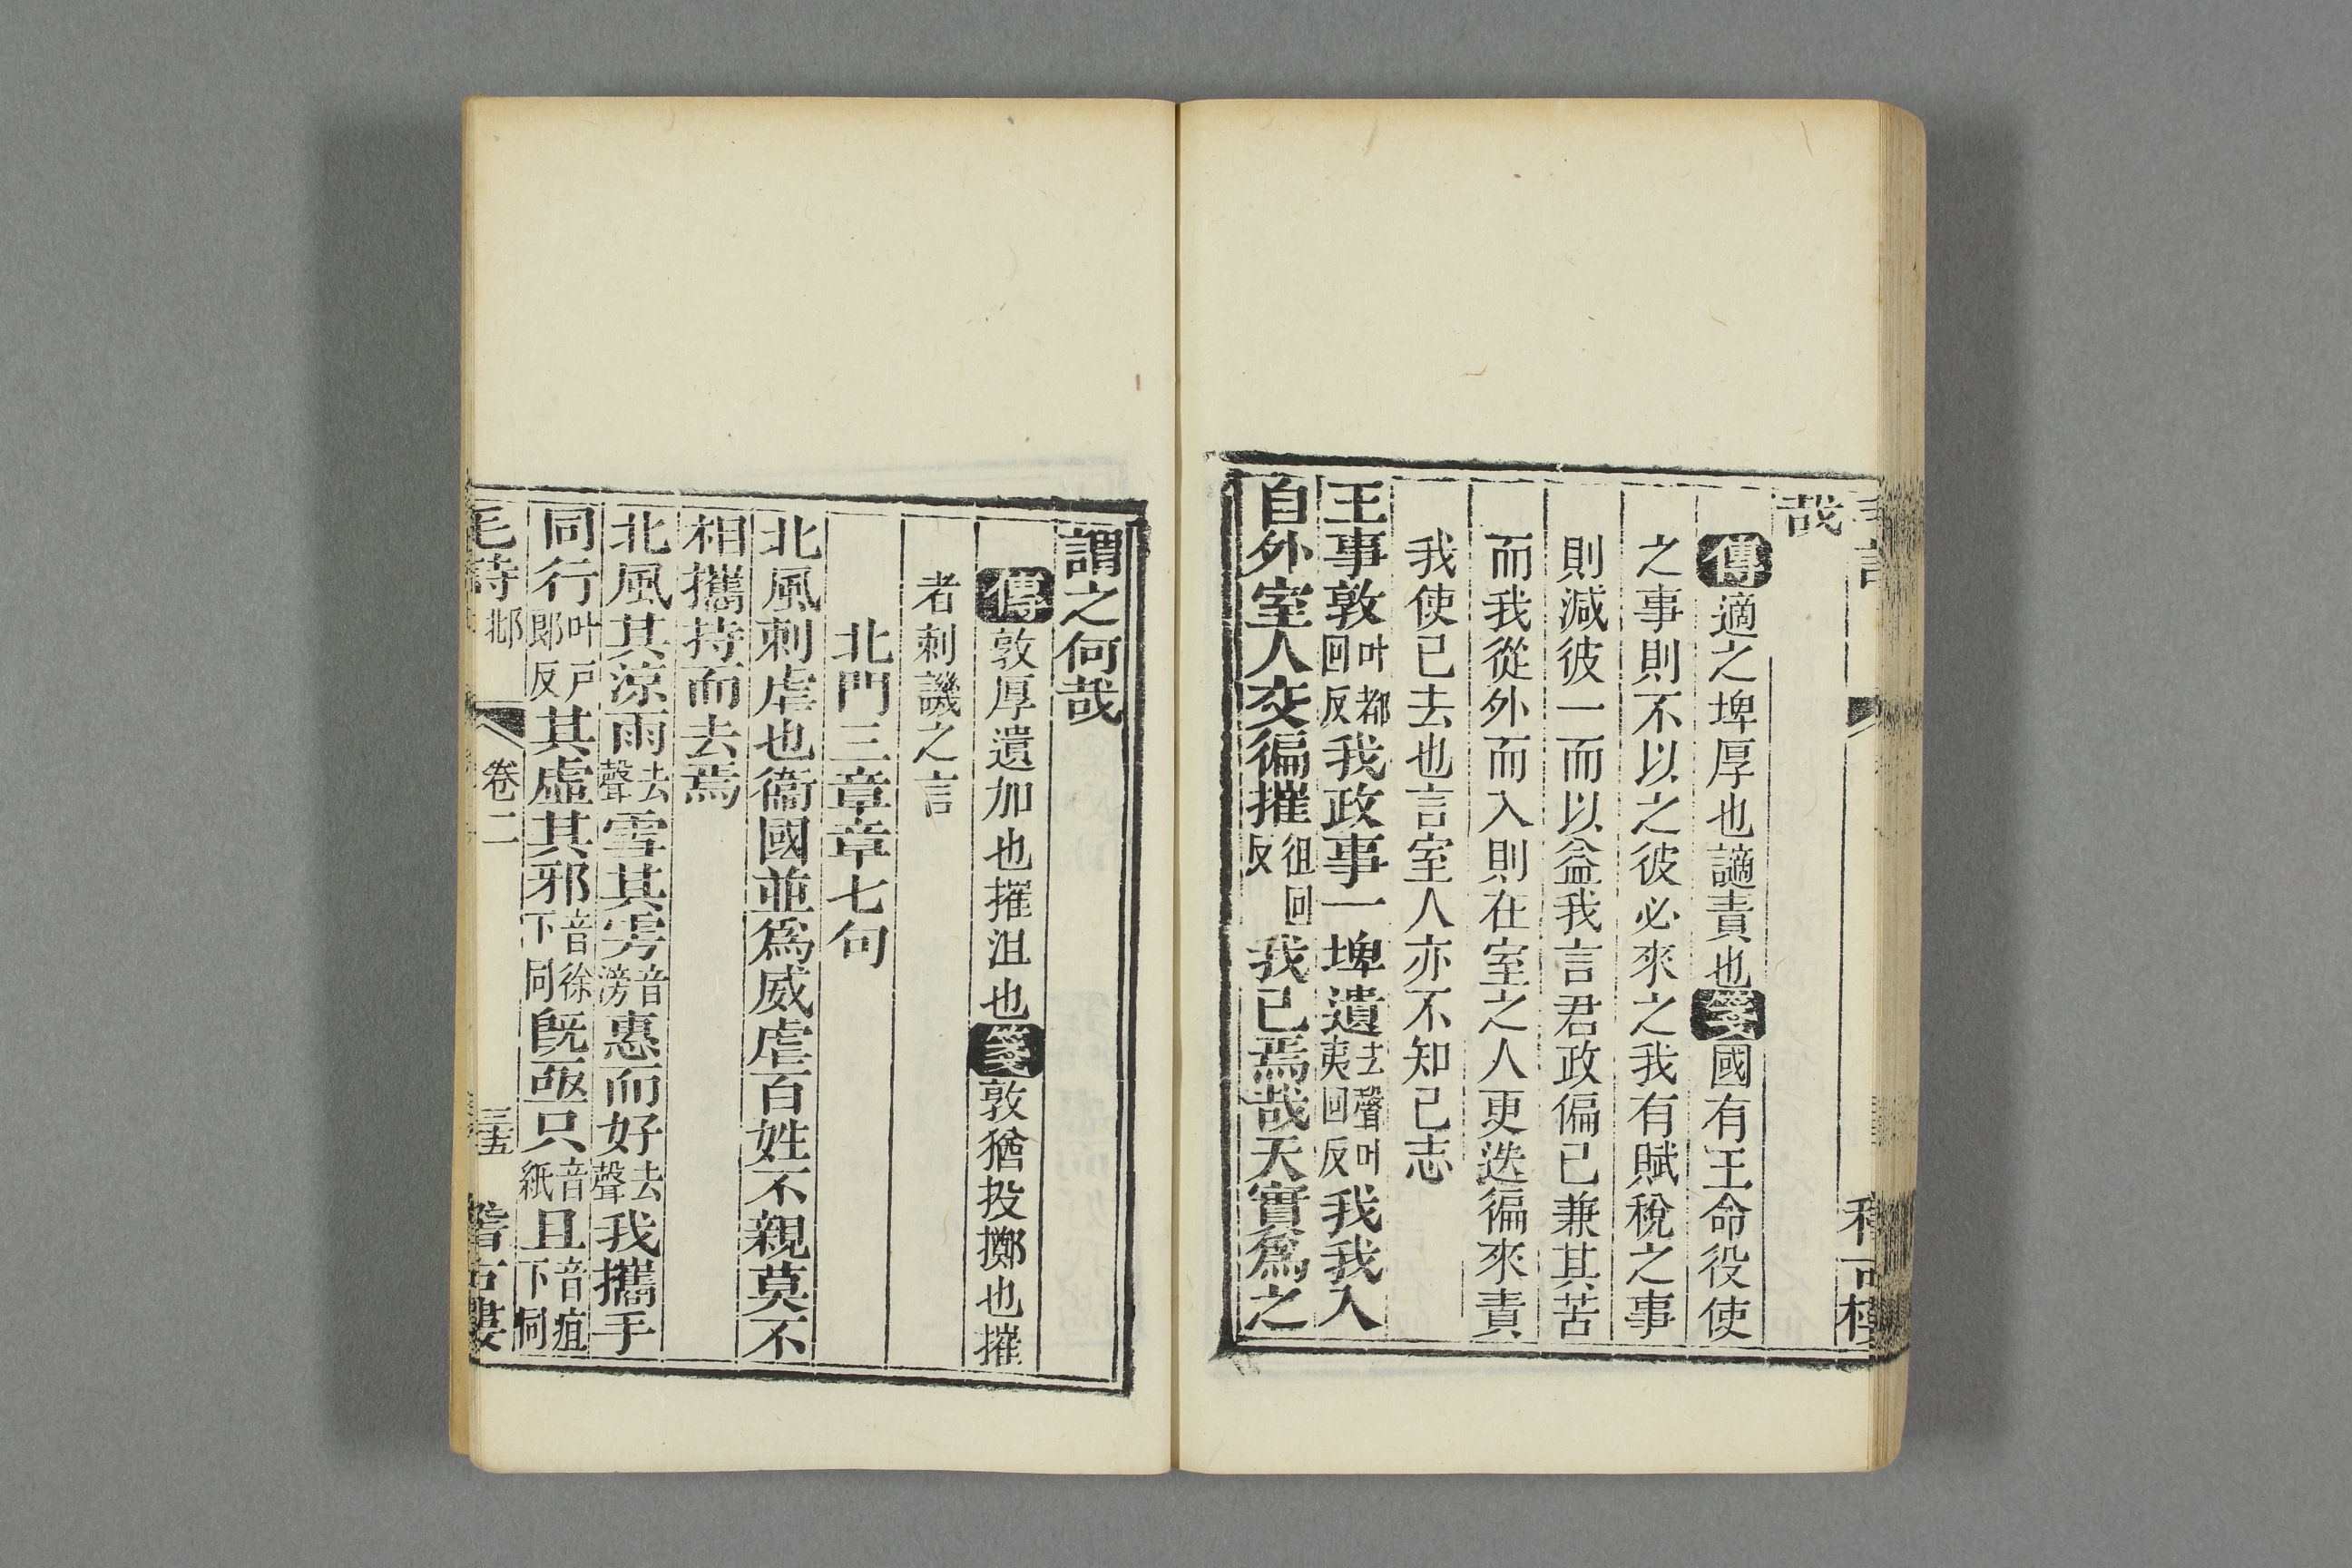 哉
傳適之埤厚也讁責也箋國有王命役使
之事則不以之彼必來之我有賦稅之事
則減彼一而以益我言君政偏已兼其苦
而我從外而入則在室之人更迭徧來責
我使已去也言室人亦不知已志
王事敦叶都回反我政事一埤遺去聲叶夷回反我我入
自外室人交徧摧徂回反我已焉哉天實爲之
謂之何哉
傳敦厚遺加也摧沮也箋敦猶投擲也摧
者刺譏之言
北門三章章七句
北風刺虐也衞國並爲威虐百姓不親莫不
相攜持而去焉
北風其涼雨去聲雪其雱音滂惠而好去聲我攜手
同行叶戶郞反其虛其邪音徐下同旣亟只音紙且音疽下同
毛詩 邶 卷二 三五